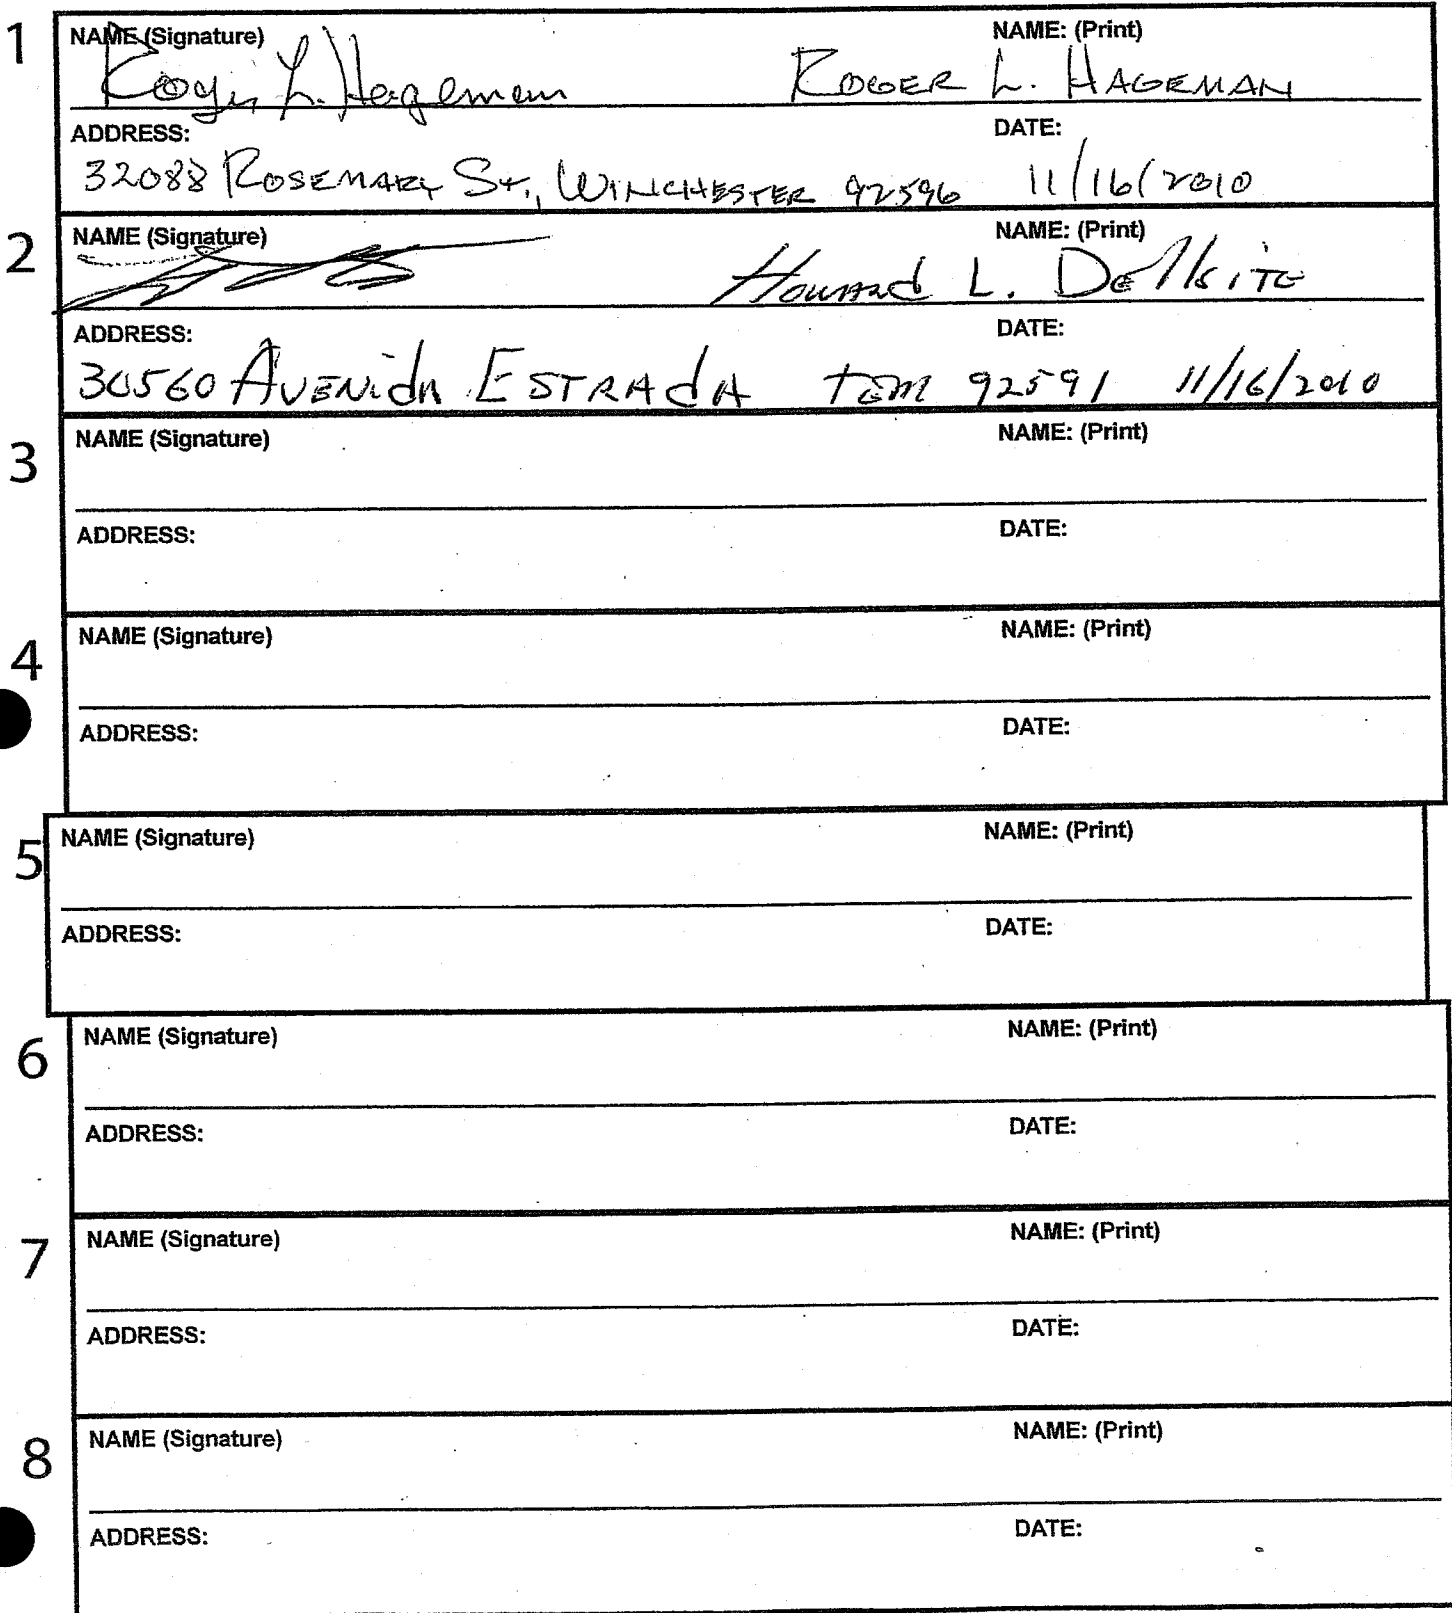 1
NAME (Signature) NAME: (Print)
Roger L. Hageman ROGER L. HAGEMAN
ADDRESS: DATE:
32088 ROSEMARY ST., WINCHESTER 92596 11/16/2010
2
NAME (Signature) NAME: (Print)
Howard L.
ADDRESS: DATE:
30560 AVENIdA ESTRAdA TEM 92591 11/16/2010
3
NAME (Signature) NAME: (Print)
ADDRESS: DATE:
4
NAME (Signature) NAME: (Print)
ADDRESS: DATE:
5
NAME (Signature) NAME: (Print)
ADDRESS: DATE:
6
NAME (Signature) NAME: (Print)
ADDRESS: DATE:
7
NAME (Signature) NAME: (Print)
ADDRESS: DATE:
8
NAME (Signature) NAME: (Print)
ADDRESS: DATE: